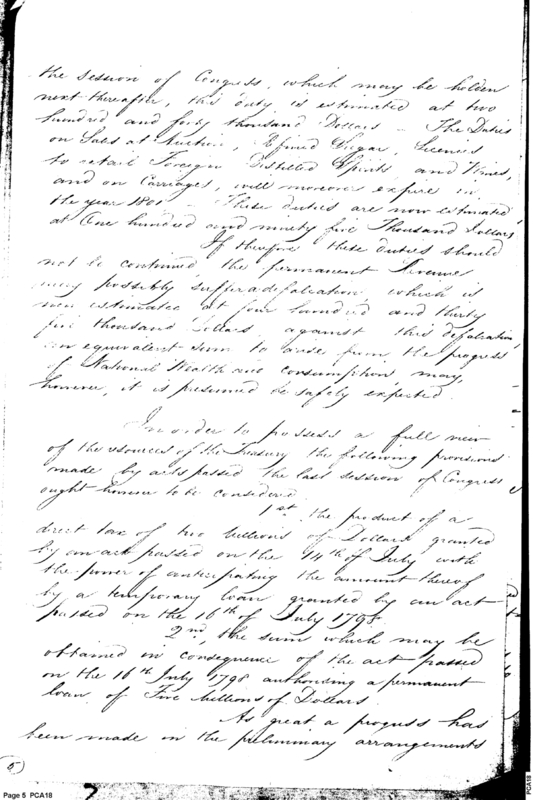 the session of Congress, which may be holden
next thereafter, this duty is estimated at two
hundred and forty thousand Dollars – The Duties
on Sales at Auction, Refined Sugar, Licences
to retail Foreign Distilled Spirits and Wines,
and on Carriages, will moreover expire in
the year 1801 – These duties are now estimated
at One hundred and ninety five Thousand Dollars
If therefore these duties should
not be continued, the permanent Revenue
may possibly suffer a defalcation, which is
now estimated at four hundred and thirty
five thousand Dollars, against this defalcation,
an equivalent sum to arise from the progress
of National Wealth and consumption, may,
however, it is presumed be safely expected.
In order to possess a full view
of the resources of the Treasury the following provisions
made by acts passed the last session of Congress
ought however to be considered.
1st. the product of a
direct tax of two Millions of Dollars granted
by an act passed on the 14th of July with
the power of anticipating the amount thereof
by a temporary loan granted by an act
passed on the 16th of July 1798.
2nd, the sum which may be
obtained in consequence of the act passed
on the 16th July 1798 authorizing a permanent
loan of Five Millions of Dollars.
As great a progress has
been made in the preliminary arrangements
5
Page 5 PCA18
PCA18